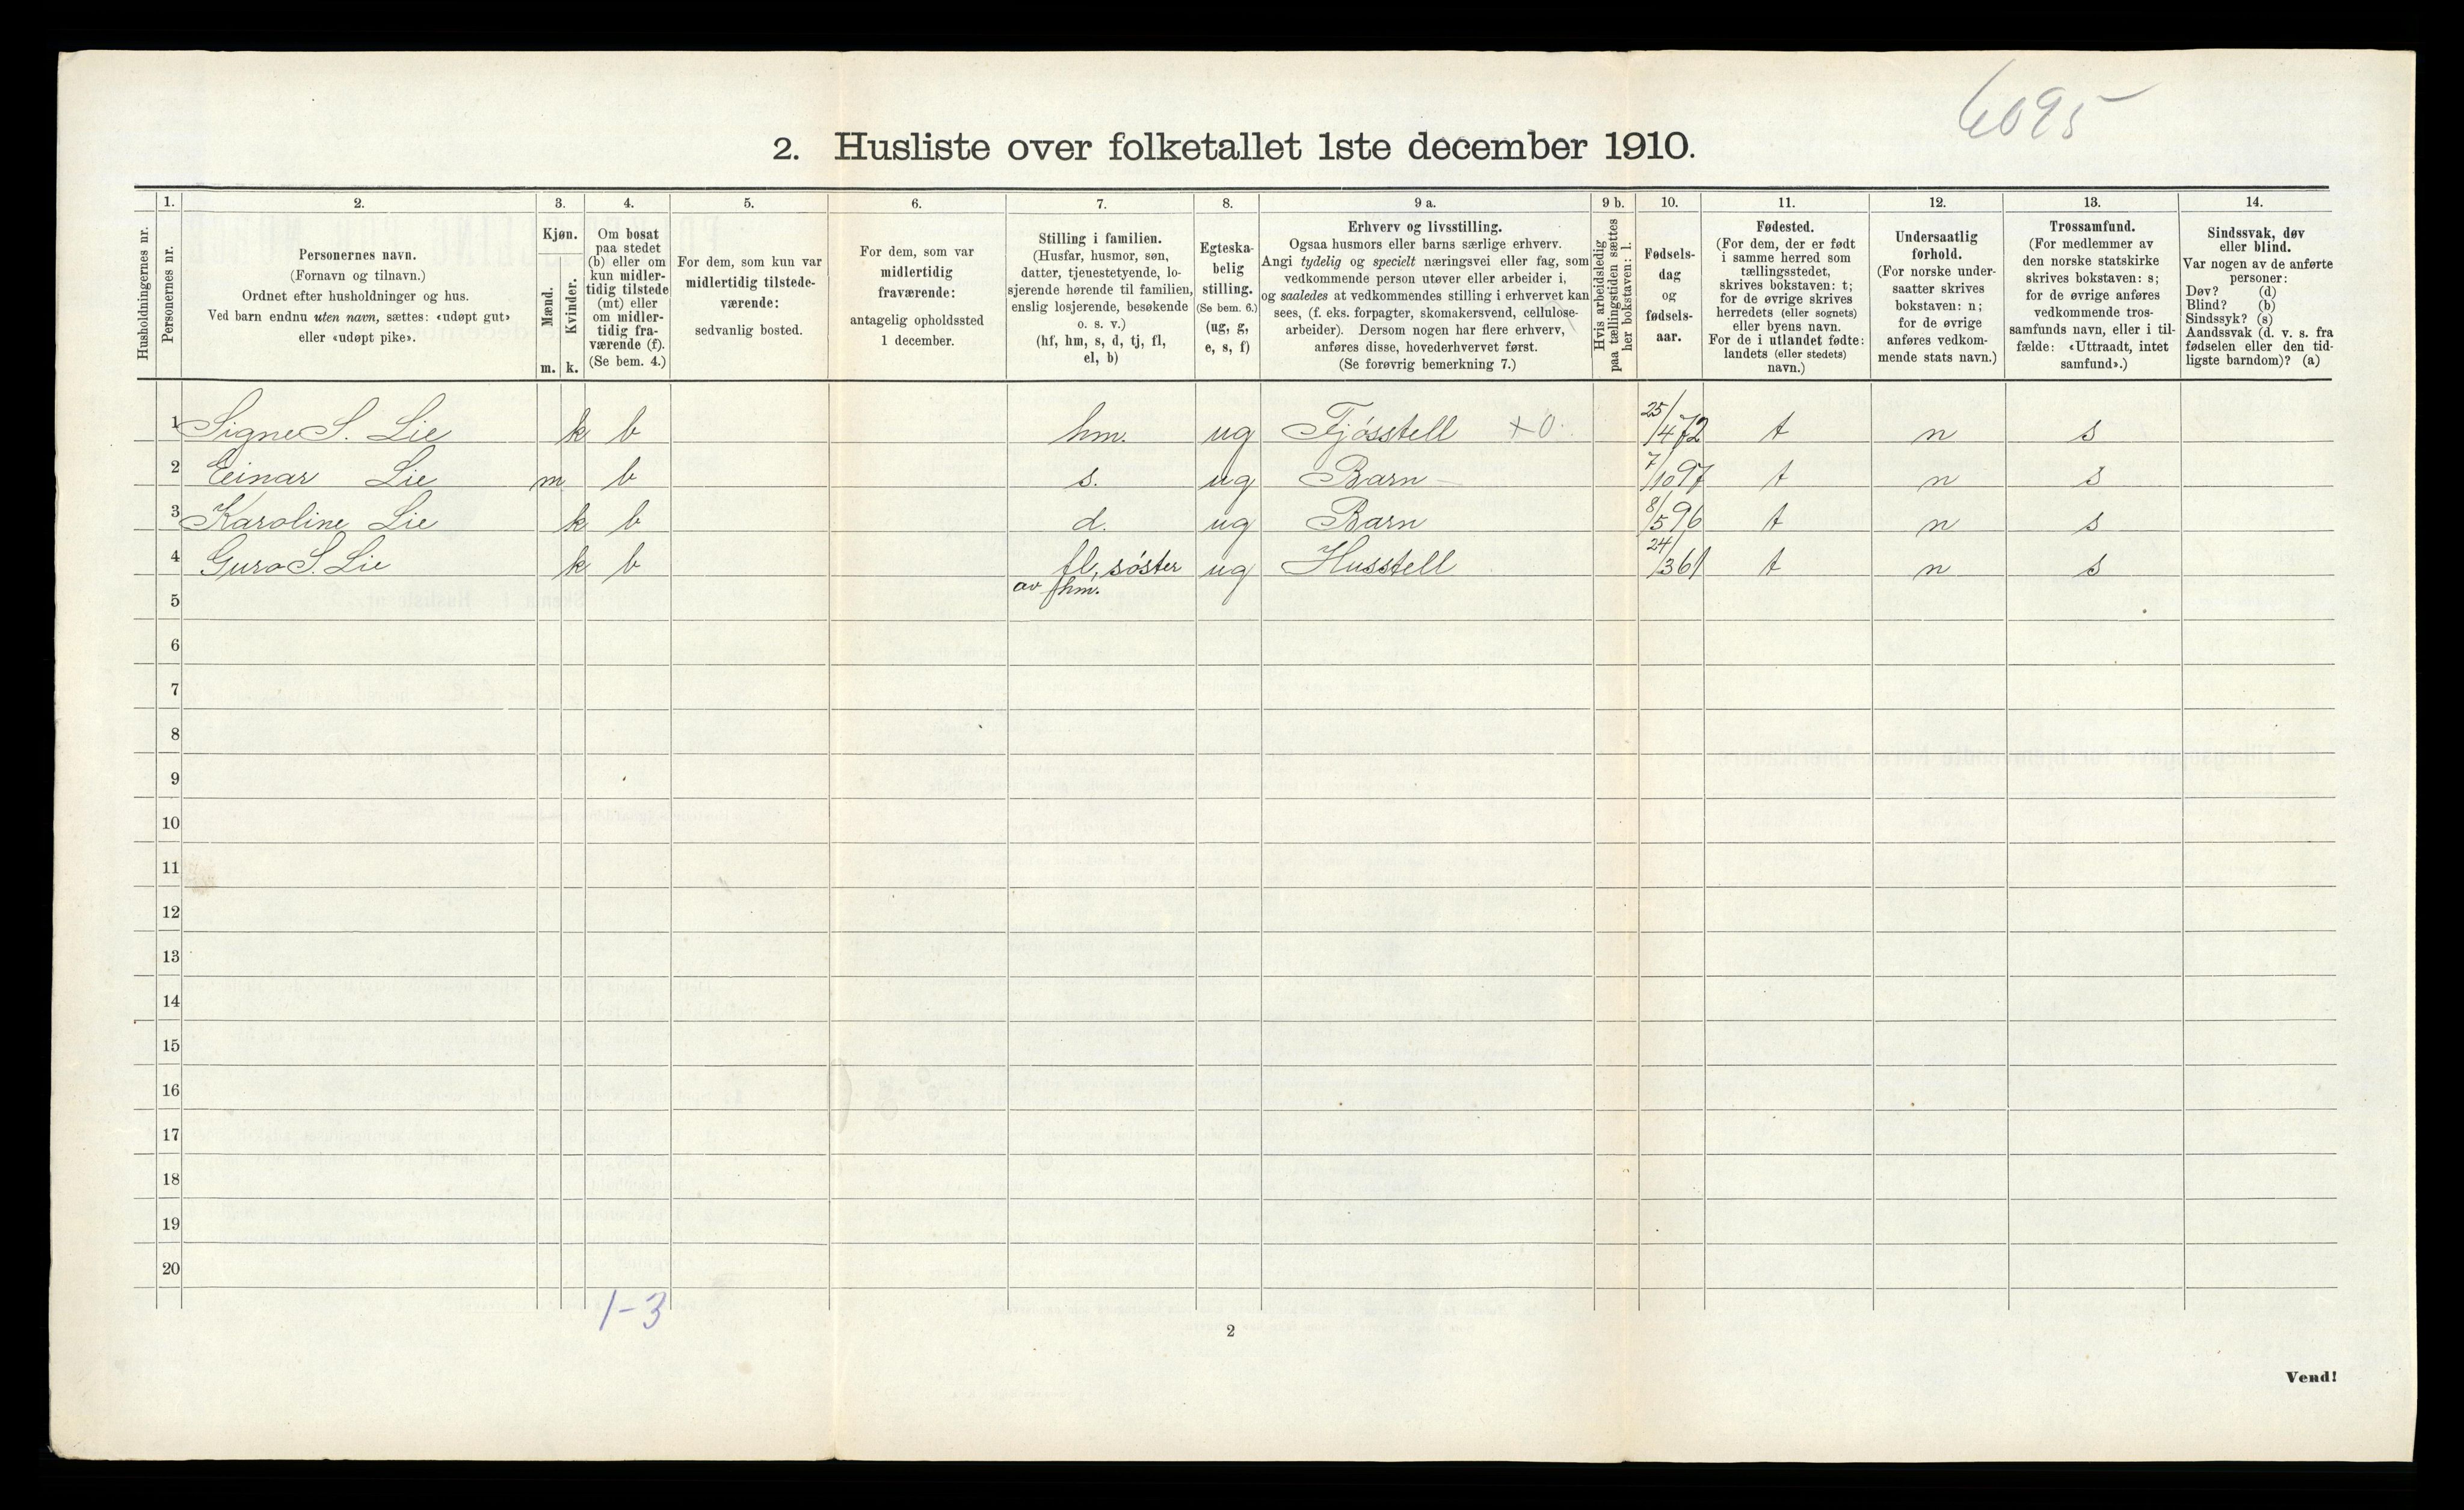 6095
2. Husliste over folketallet 1ste december 1910.
Husholdningernes nr.
1.
Personernes nr.
2.
Personernes navn.
(Fornavn og tilnavn.)
Ordnet efter husholdninger og hus.
Ved barn endnu uten navn, sættes: «udøpt gut»
eller «udøpt pike».
3.
Kjøn.
Mænd.
Kvinder.
m. k.
4.
Om bosat
paa stedet
(b) eller om
kun midler-
tidig tilstede
(mt) eller
om midler-
tidig fra-
værende (f).
(Se bem. 4.)
5.
For dem, som kun var
midlertidig tilstede-
værende:
sedvanlig bosted.
6.
For dem, som var
midlertidig
fraværende:
antagelig opholdssted
1 december.
7.
Stilling i familien.
(Husfar, husmor, søn,
datter, tjenestetyende, lo-
sjerende hørende til familien,
enslig losjerende, besøkende
o. s. v.)
(hf, hm, s, d, tj, fl,
el, b)
8.
Egteska-
belig
stilling.
(Se bem. 6.)
(ug, g,
e, s, f)
9 a.
Erhverv og livsstilling.
Ogsaa husmors eller barns særlige erhverv.
Angi tydelig og specielt næringsvei eller fag, som
vedkommende person utøver eller arbeider i,
og saaledes at vedkommendes stilling i erhvervet kan
sees, (f. eks. forpagter, skomakersvend, cellulose-
arbeider). Dersom nogen har flere erhverv,
anføres disse, hovederhvervet først.
(Se forøvrig bemerkning 7.)
9 b.
Hvis arbeidsledig
paa tællingstiden sættes
her bokstaven: l.
10.
Fødsels-
dag
og
fødsels-
aar.
11.
Fødested.
(For dem, der er født
i samme herred som
tællingsstedet,
skrives bokstaven: t;
for de øvrige skrives
herredets (eller sognets)
eller byens navn.
For de i utlandet fødte:
landets (eller stedets)
navn.)
12.
Undersaatlig
forhold.
(For norske under-
saatter skrives
bokstaven: n;
for de øvrige
anføres vedkom-
mende stats navn.)
13.
Trossamfund.
(For medlemmer av
den norske statskirke
skrives bokstaven: s;
for de øvrige anføres
vedkommende tros-
samfunds navn, eller i til-
fælde: «Uttraadt, intet
samfund».)
14.
Sindssvak, døv
eller blind.
Var nogen av de anførte
personer:
Døv? (d)
Blind? (b)
Sindssyk? (s)
Aandssvak (d. v. s. fra
fødselen eller den tid-
ligste barndom)? (a)
1 Signe S. Lie k b hm. ug Fjósstell +0 25/4 72 t n s
2 Einar Lie m b s. ug Barn 7/10 97 t n s
3 Karoline Lie k b d. ug Barn 8/5 96 t n s
4 Guro S. Lie k b fl, sóster ug Husstell 24/3 61 t n s
av hm.
5
6
7
8
9
10
11
12
13
14
15
16
17
18
19
20
1-3
2
Vend!